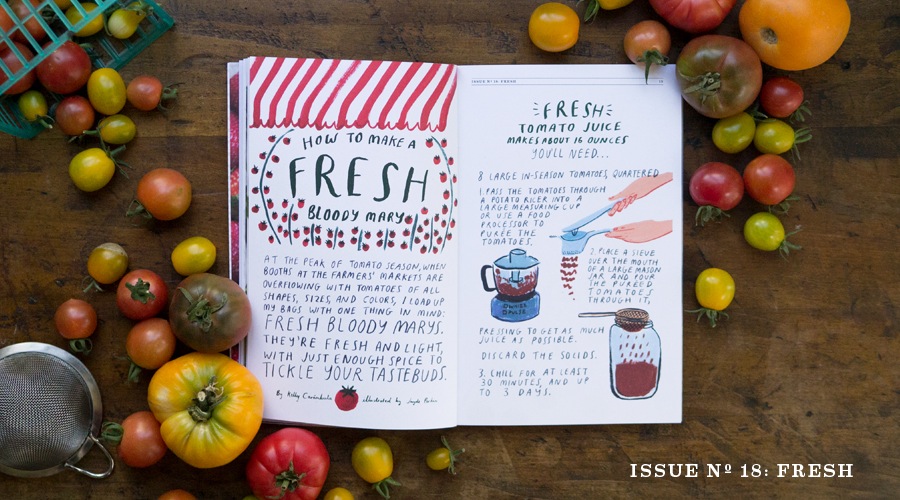 HOW TO MAKE A
FRESH
BLOODY MARY
AT THE PEAK OF TOMATO SEASON, WHEN
BOOTHS AT THE FARMERS' MARKETS ARE
OVERFLOWING WITH TOMATOES OF ALL
SHAPES, SIZES, AND COLORS, I LOAD UP
MY BAGS WITH ONE THING IN MIND:
FRESH BLOODY MARYS.
THEY'RE FRESH AND LIGHT,
WITH JUST ENOUGH SPICE TO
TICKLE YOUR TASTEBUDS.
By Kelly illustrated by
ISSUE Nº 18: FRESH
FRESH
TOMATO JUICE
MAKES ABOUT 16 OUNCES
YOU'LL NEED...
8 LARGE IN-SEASON TOMATOES, QUARTERED
1. PASS THE TOMATOES THROUGH
A POTATO RICER INTO A
LARGE MEASURING CUP
OR USE A FOOD
PROCESSOR TO
PURÉE THE
TOMATOES.
2. PLACE A SIEVE
OVER THE MOUTH
OF A LARGE MASON
JAR AND POUR
THE PUREED
TOMATOES
THROUGH IT,
PRESSING TO GET AS MUCH
JUICE AS POSSIBLE.
DISCARD THE SOLIDS.
3. CHILL FOR AT LEAST
30 MINUTES, AND UP
TO 3 DAYS.
ISSUE Nº 18: FRESH